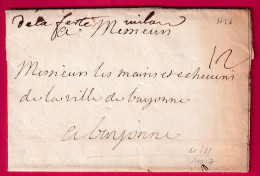 de la ferté milon
A Messieurs
12
Messieurs les maires et echevins
de la ville de bayonne
a bayonne